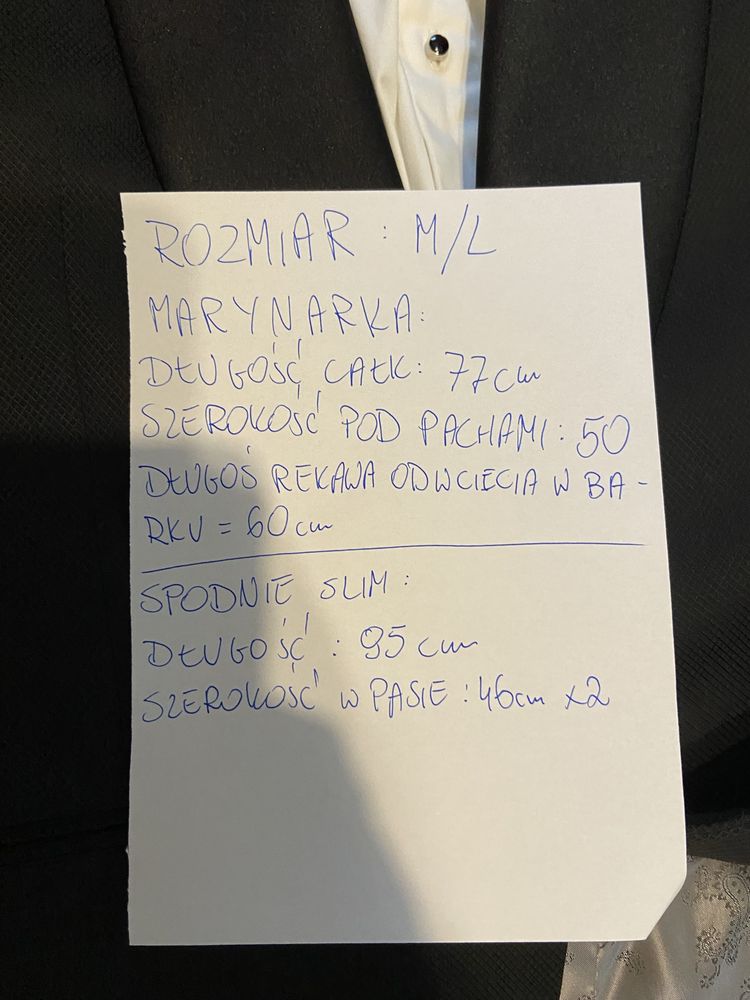 ROZMIAR : M/L
MARYNARKA:
DŁUGOŚĆ CAŁK: 77cm
SZEROKOŚĆ POD PACHAMI: 50
DŁUGOŚ REKAWA ODWCIECIA W BA-
RKU = 60cm
SPODNIE SLIM:
DŁUGOŚĆ : 95 cm
SZEROKOŚĆ W PASIE : 46cm x2